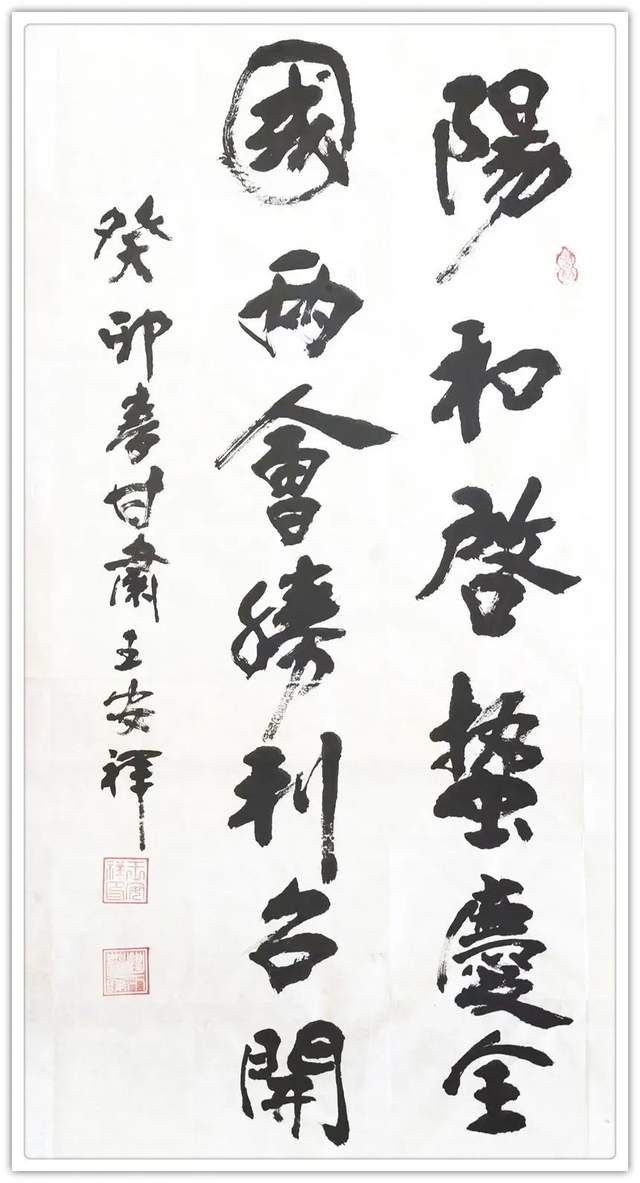 陽和啓蟄慶全
國兩會勝利召開
癸卯春甘肅王安祥